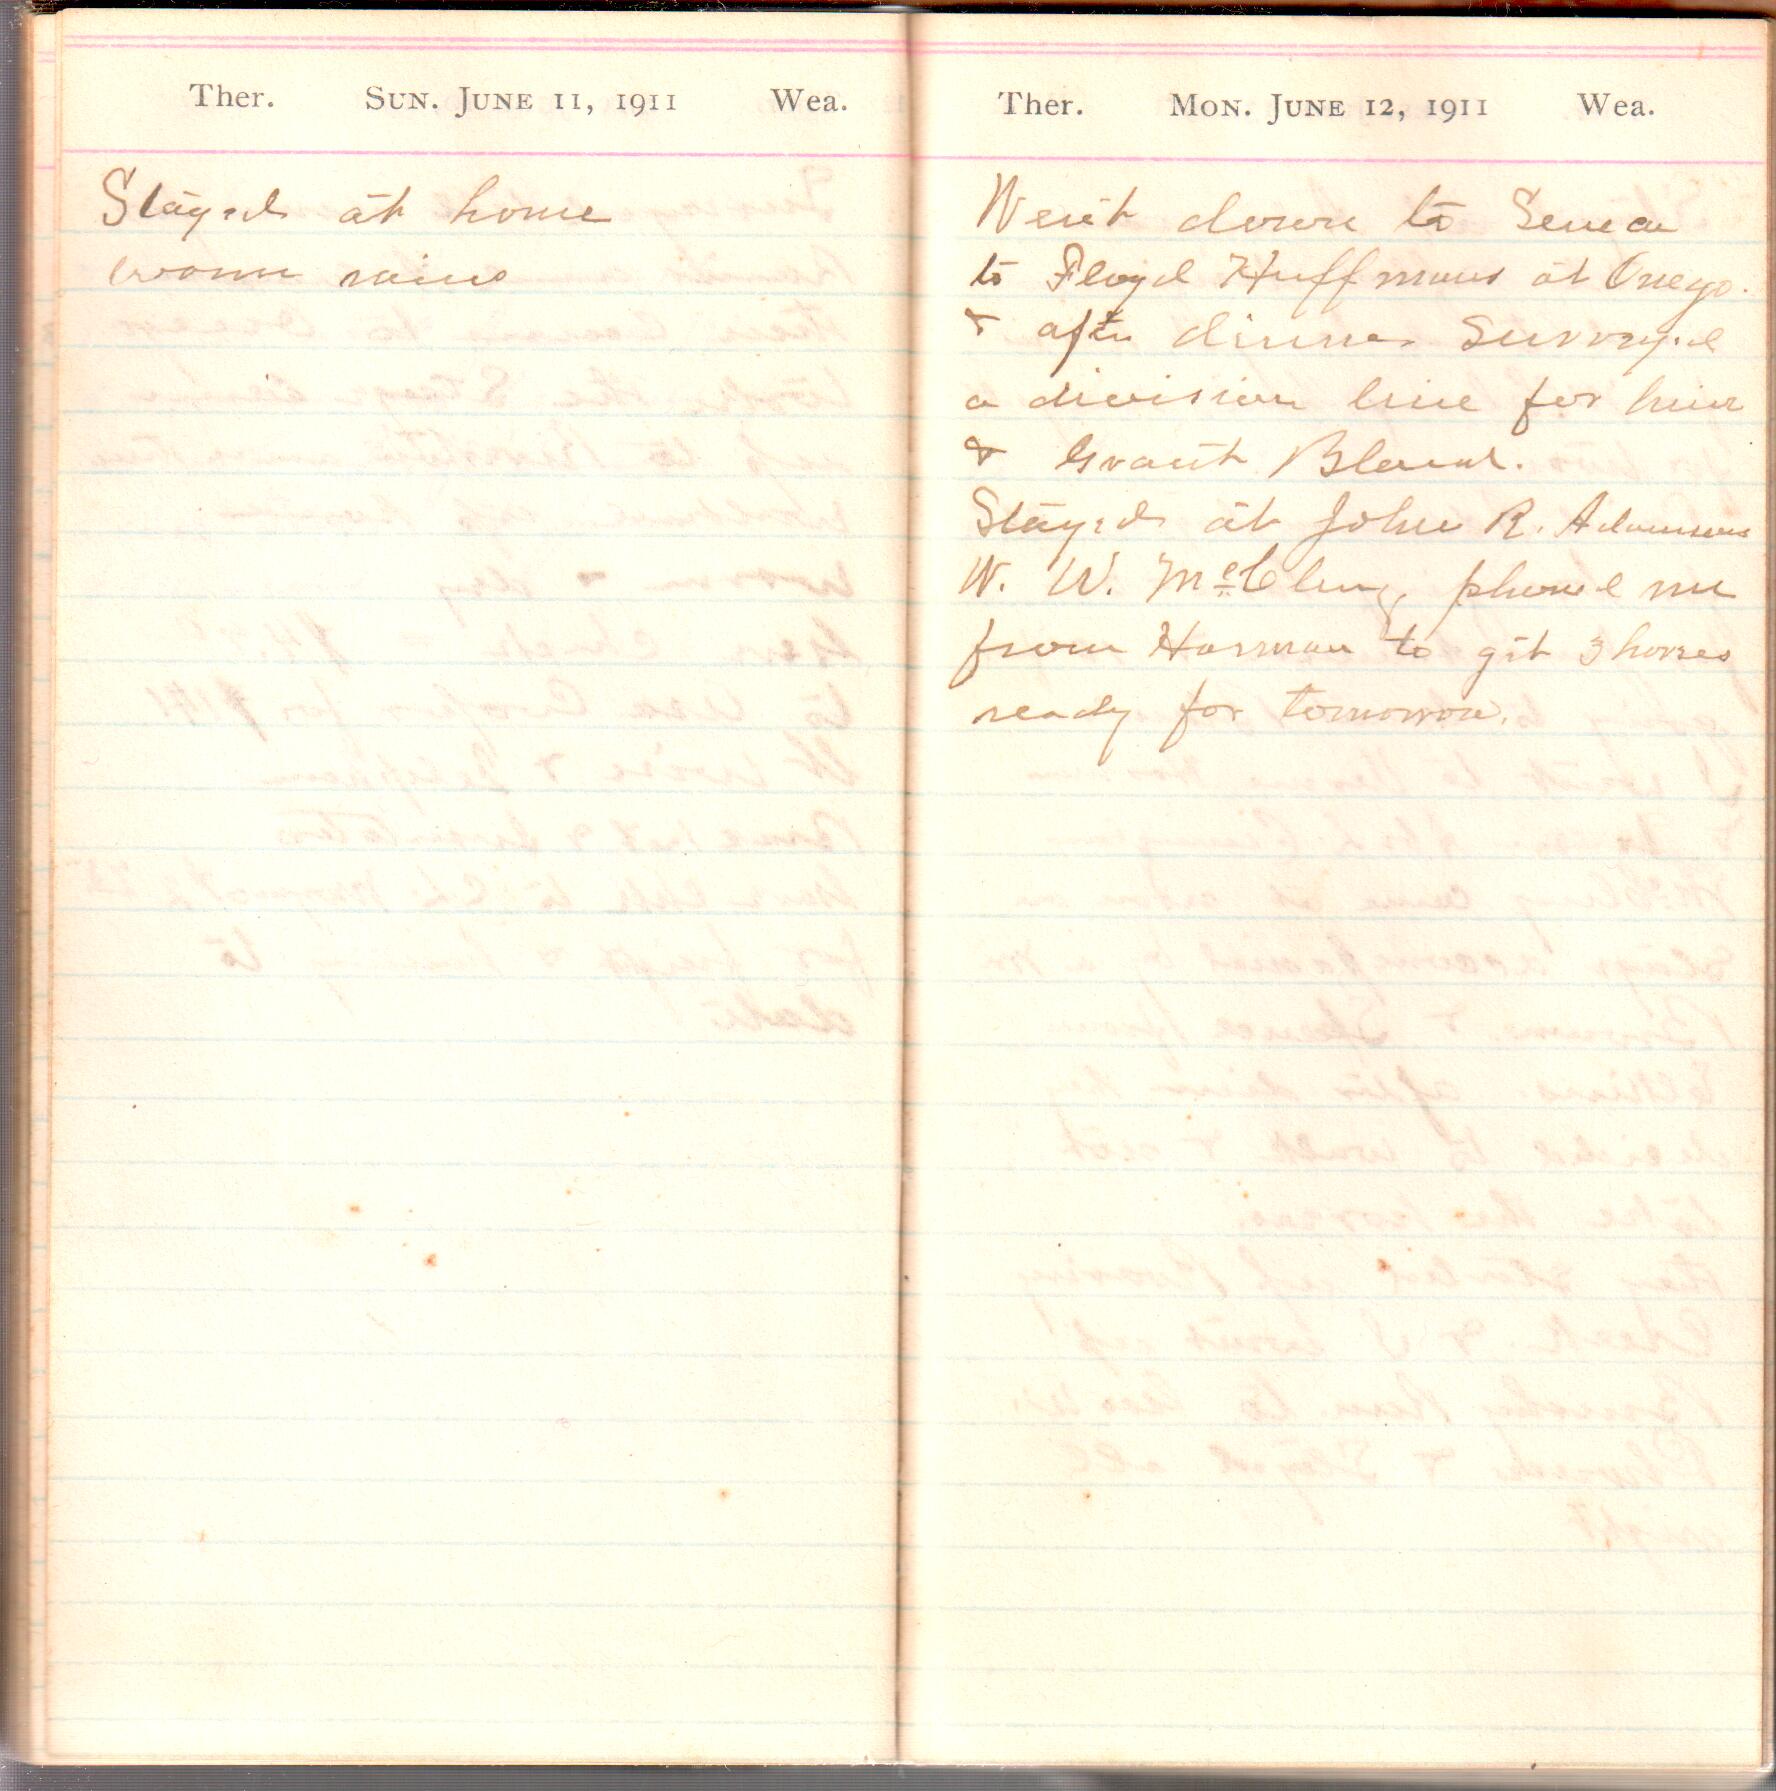 Ther. SUN. JUNE 11, 1911 Wea.
Stayed at home
warm rains
Ther. MON. JUNE 12, 1911 Wea.
Went down to Seneca
to Floyd Huffmans at Onego.
& after dinner surveyed
a division line for him
& Grant Bland.
Stayed at John R. Adamsons
W. W. McClung, phoned me
from Harman to git 3 horses
ready for tomorrow.